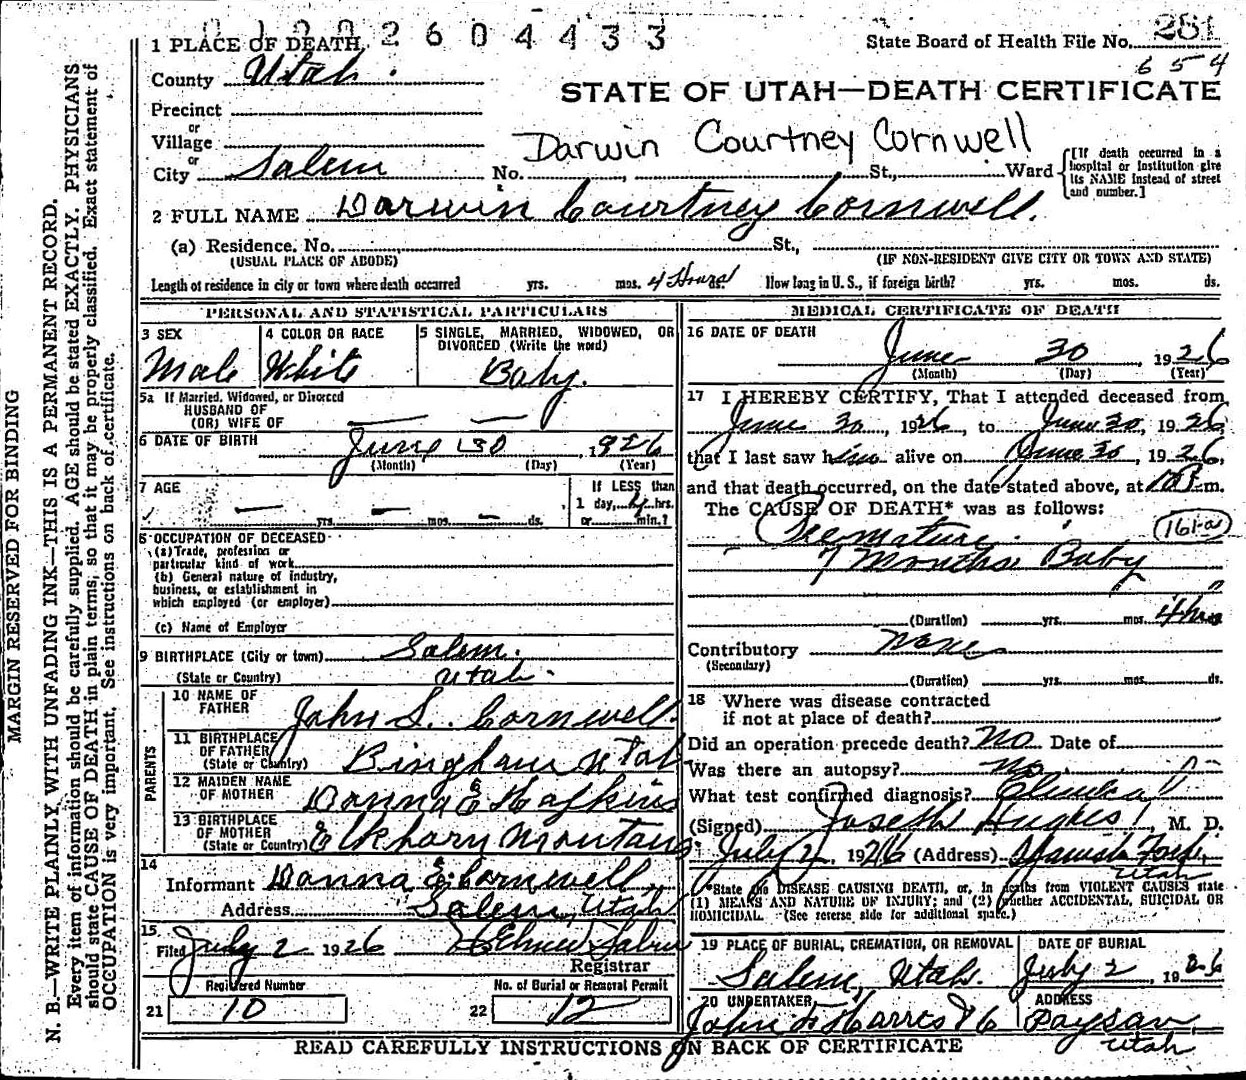 2604433
State Board of Health File No. 281
654
1 PLACE OF DEATH
County Utah.
STATE OF UTAH—DEATH CERTIFICATE
Precinct
or
Village
Darwin Courtney Cornwell
or
City Salem No. , St., Ward {[If death occurred in a hospital or institution give its NAME instead of street and number.]
2 FULL NAME Darwin Courtney Cornwell.
(a) Residence. No. St.,
(USUAL PLACE OF ABODE) (IF NON-RESIDENT GIVE CITY OR TOWN AND STATE)
Length of residence in city or town where death occurred yrs. mos. 4 Hours ds. How long in U. S., if foreign birth? yrs. mos. ds.
PERSONAL AND STATISTICAL PARTICULARS
3 SEX 4 COLOR OR RACE 5 SINGLE, MARRIED, WIDOWED, OR DIVORCED (Write the word)
Male White Baby.
5a If Married, Widowed, or Divorced
HUSBAND OF
(OR) WIFE OF — —
6 DATE OF BIRTH June 30 1926
(Month) (Day) (Year)
7 AGE If LESS than
— yrs. — mos. — ds. 1 day, 4 hrs.
or min.?
8 OCCUPATION OF DECEASED
(a) Trade, profession or
particular kind of work
(b) General nature of industry,
business, or establishment in
which employed (or employer)
(c) Name of Employer
9 BIRTHPLACE (City or town) Salem.
(State or Country) Utah.
PARENTS
10 NAME OF FATHER John S. Cornwell.
11 BIRTHPLACE OF FATHER (State or Country) Bingham Utah
12 MAIDEN NAME OF MOTHER Donna E Hafkins
13 BIRTHPLACE OF MOTHER (State or Country) Elkhorn Mountains
14
Informant Donna E. Cornwell.
Address Salem, Utah
15
Filed July 2 1926
Registrar
Registered Number No. of Burial or Removal Permit
21 10 22 12
MEDICAL CERTIFICATE OF DEATH
16 DATE OF DEATH
June 30, 1926
(Month) (Day) (Year)
17 I HEREBY CERTIFY, That I attended deceased from
June 30, 1926, to June 30, 1926,
that I last saw him alive on June 30, 1926,
and that death occurred, on the date stated above, at 10 P.m.
The CAUSE OF DEATH* was as follows:
Premature. 161-a
7 Months Baby
(Duration) yrs. mos. 4 hrs
Contributory None
(Secondary)
(Duration) yrs. mos. ds.
18 Where was disease contracted
if not at place of death?
Did an operation precede death? No Date of
Was there an autopsy? No
What test confirmed diagnosis? Clinical
(Signed) Joseph Hughes, M. D.
July 2, 1926 (Address) Spanish Fork,
Utah
*State the DISEASE CAUSING DEATH, or, in deaths from VIOLENT CAUSES state
(1) MEANS AND NATURE OF INJURY; and (2) whether ACCIDENTAL, SUICIDAL OR
HOMICIDAL. (See reverse side for additional space.)
19 PLACE OF BURIAL, CREMATION, OR REMOVAL DATE OF BURIAL
Salem, Utah. July 2, 1926
20 UNDERTAKER ADDRESS
John F Harris Payson,
Utah
READ CAREFULLY INSTRUCTIONS ON BACK OF CERTIFICATE
MARGIN RESERVED FOR BINDING
N. B.—WRITE PLAINLY WITH UNFADING INK—THIS IS A PERMANENT RECORD.
Every item of information should be carefully supplied. AGE should be stated EXACTLY. PHYSICIANS
should state CAUSE OF DEATH in plain terms, so that it may be properly classified. Exact statement of
OCCUPATION is very important. See instructions on back of certificate.